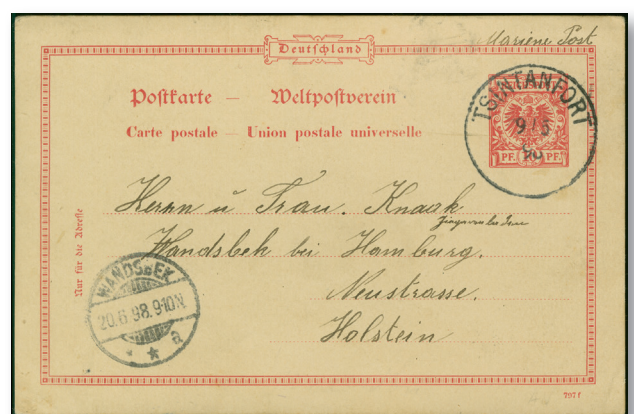 Mariene Post
Deutschland
Postkarte — Weltpostverein
Carte postale — Union postale universelle
TSINTANFORT
9/5
98
10 PF. PF.
Herrn u Frau. Knaak
Wandsbek bei Hamburg.
Neustrasse.
Holstein
Nur für die Adresse
WANDSBEK
20.6.98.9-10N.
a
797f